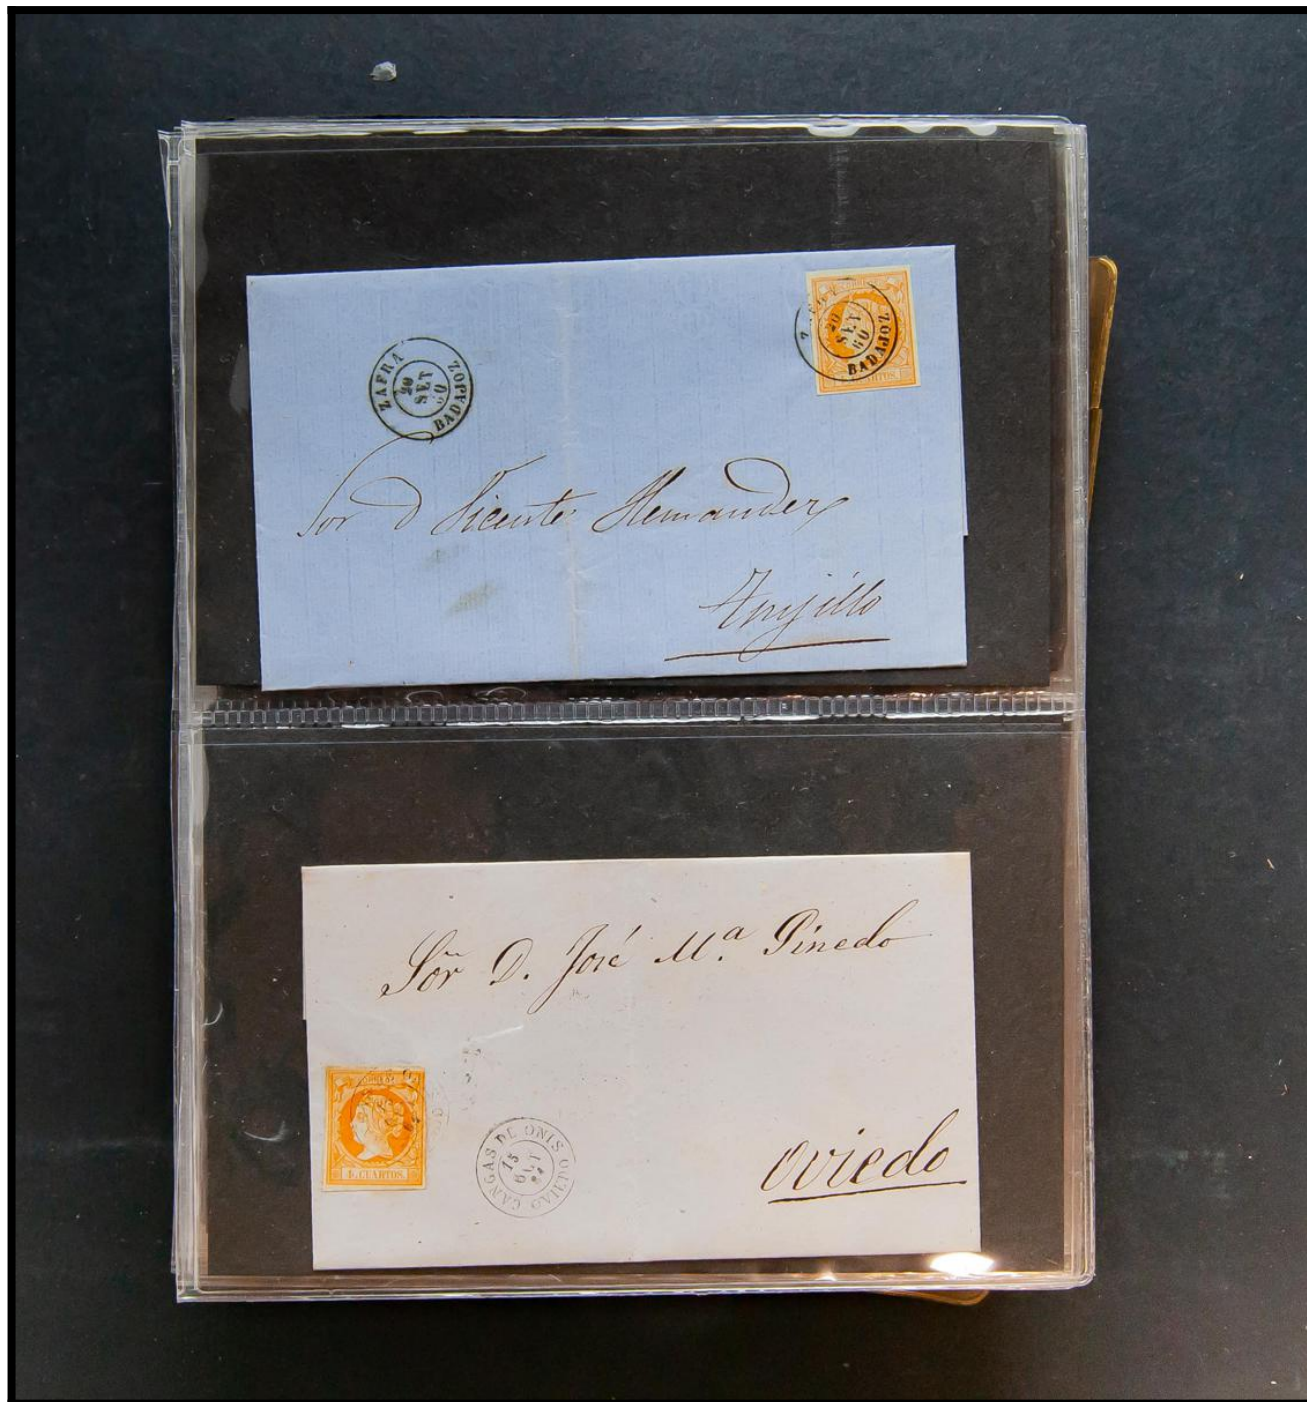 ZAFRA
20
SET
60
BADAJOZ
20
SET
60
BADAJOZ
CUARTOS.
Sor D Vicente Hernandez
Trujillo
Sôr D. José Mª. Pinedo
CORREOS
4. CUARTOS.
CANGAS DE ONIS OVIEDO
15
Oviedo